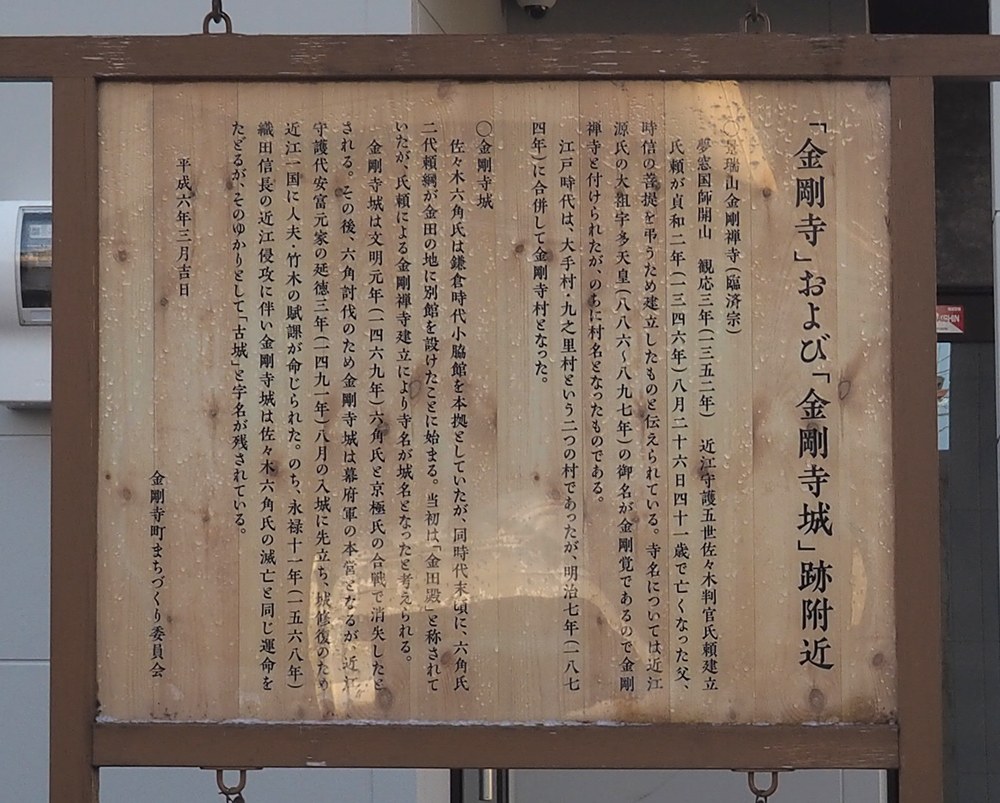 「金剛寺」および「金剛寺城」跡附近
〇景瑞山金剛禅寺(臨済宗)
夢窓国師開山 観応三年(一三五二年) 近江守護五世佐々木判官氏頼建立
氏頼が貞和二年(一三四六年)八月二十六日四十一歳で亡くなった父、
時信の菩提を弔うため建立したものと伝えられている。寺名については近江
源氏の大祖宇多天皇(八八六~八九七年)の御名が金剛覚であるので金剛
禅寺と付けられたが、のちに村名となったものである。
江戸時代は、大手村・九之里村という二つの村であったが、明治七年(一八七
四年)に合併して金剛寺村となった。
〇金剛寺城
佐々木六角氏は鎌倉時代小脇館を本拠としていたが、同時代末頃に、六角氏
二代頼綱が金田の地に別館を設けたことに始まる。当初は「金田殿」と称されて
いたが、氏頼による金剛禅寺建立により寺名が城名となったと考えられる。
金剛寺城は文明元年(一四六九年)六角氏と京極氏の合戦で消失したと
される。その後、六角討伐のため金剛寺城は幕府軍の本営となるが、近江
守護代安富元家の延徳三年(一四九一年)八月の入城に先立ち、城修復のため
近江一国に人夫・竹木の賦課が命じられた。のち、永禄十一年(一五六八年)
織田信長の近江侵攻に伴い金剛寺城は佐々木六角氏の滅亡と同じ運命を
たどるが、そのゆかりとして「古城」と字名が残されている。
平成六年三月吉日
金剛寺町まちづくり委員会